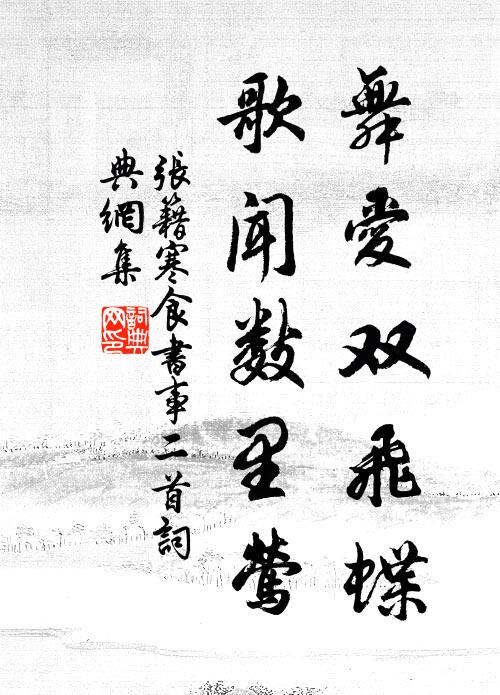 舞愛双飛蝶
歌聞数里莺
張籍寒食書事二首詞
典網集
詞典网印